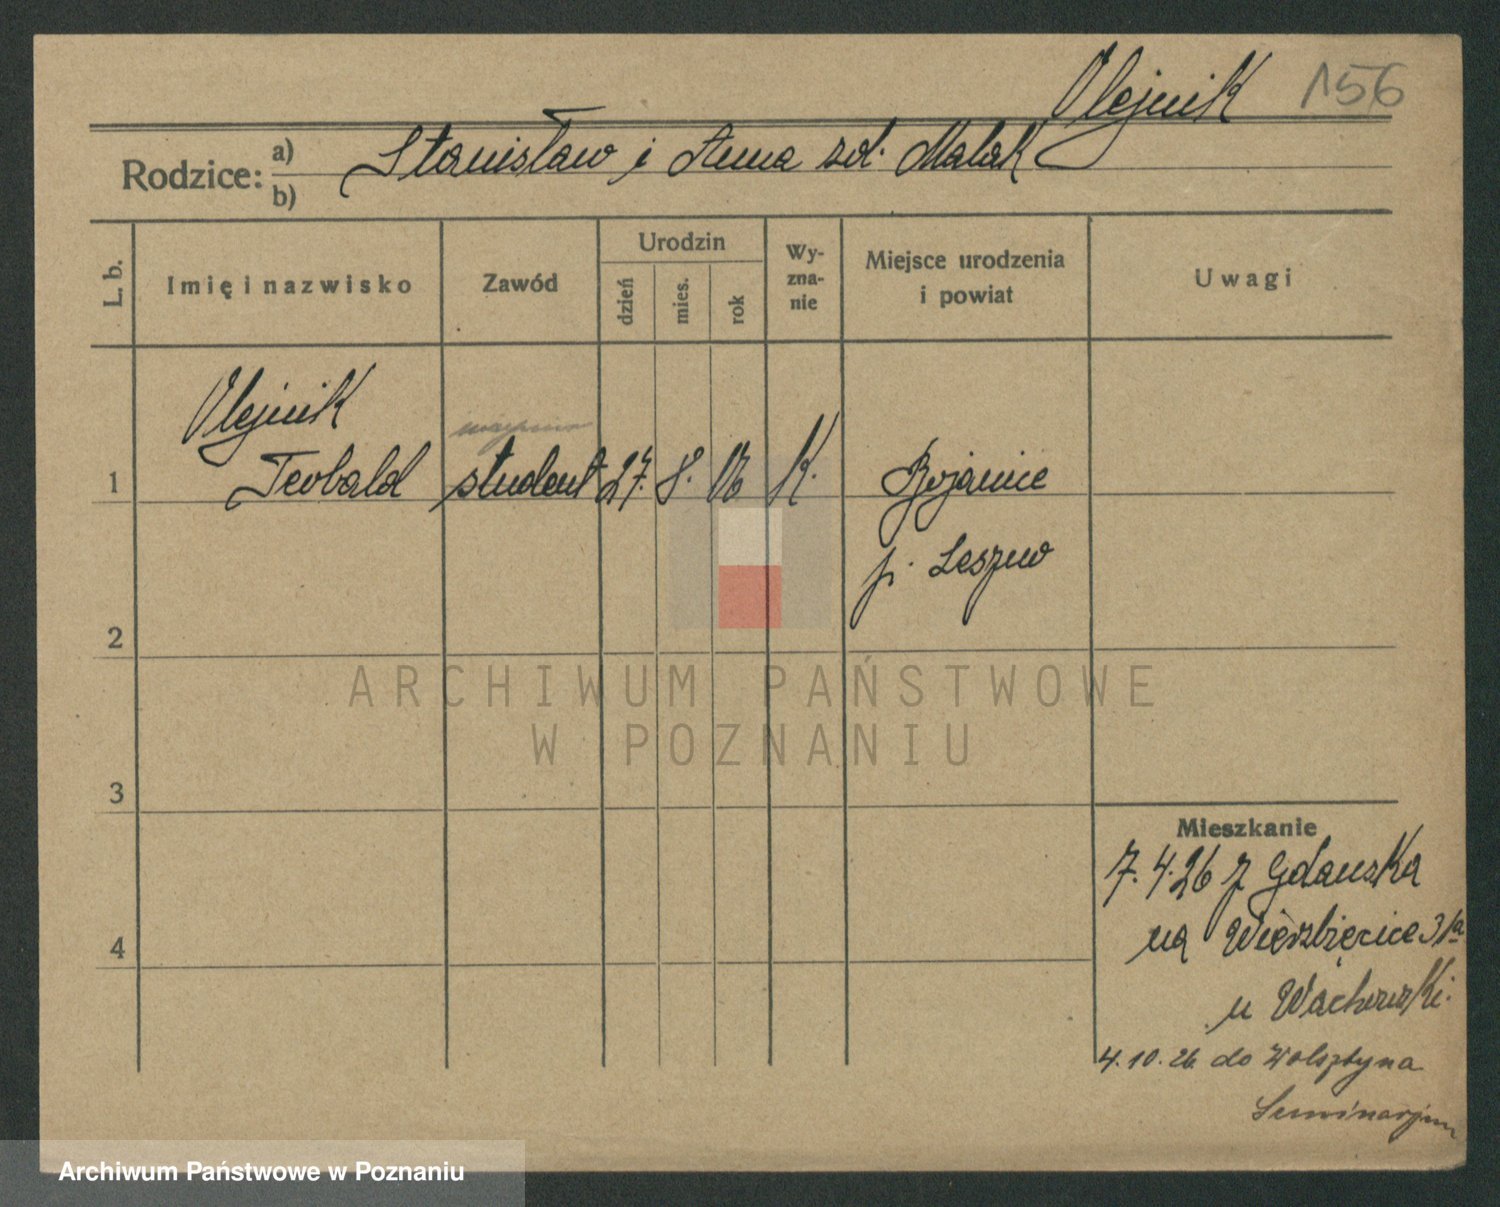 Olejnik 156
Rodzice: a) Stanisław i Anna zd. Malak
b)
L. b. Imię i nazwisko Zawód Urodzin dzień mies. rok Wy-zna-nie Miejsce urodzenia i powiat Uwagi
Olejnik
1 Teobald student 27. 8. 06 K. Bojanice
p. Leszno
2
3
4
ARCHIWUM PAŃSTWOWE
W POZNANIU
Mieszkanie
7.4.26 z Gdańska
na Wierzbięcice 31a
u Wachowski.
4.10.26 do Wolsztyna
Seminarjum
Archiwum Państwowe w Poznaniu